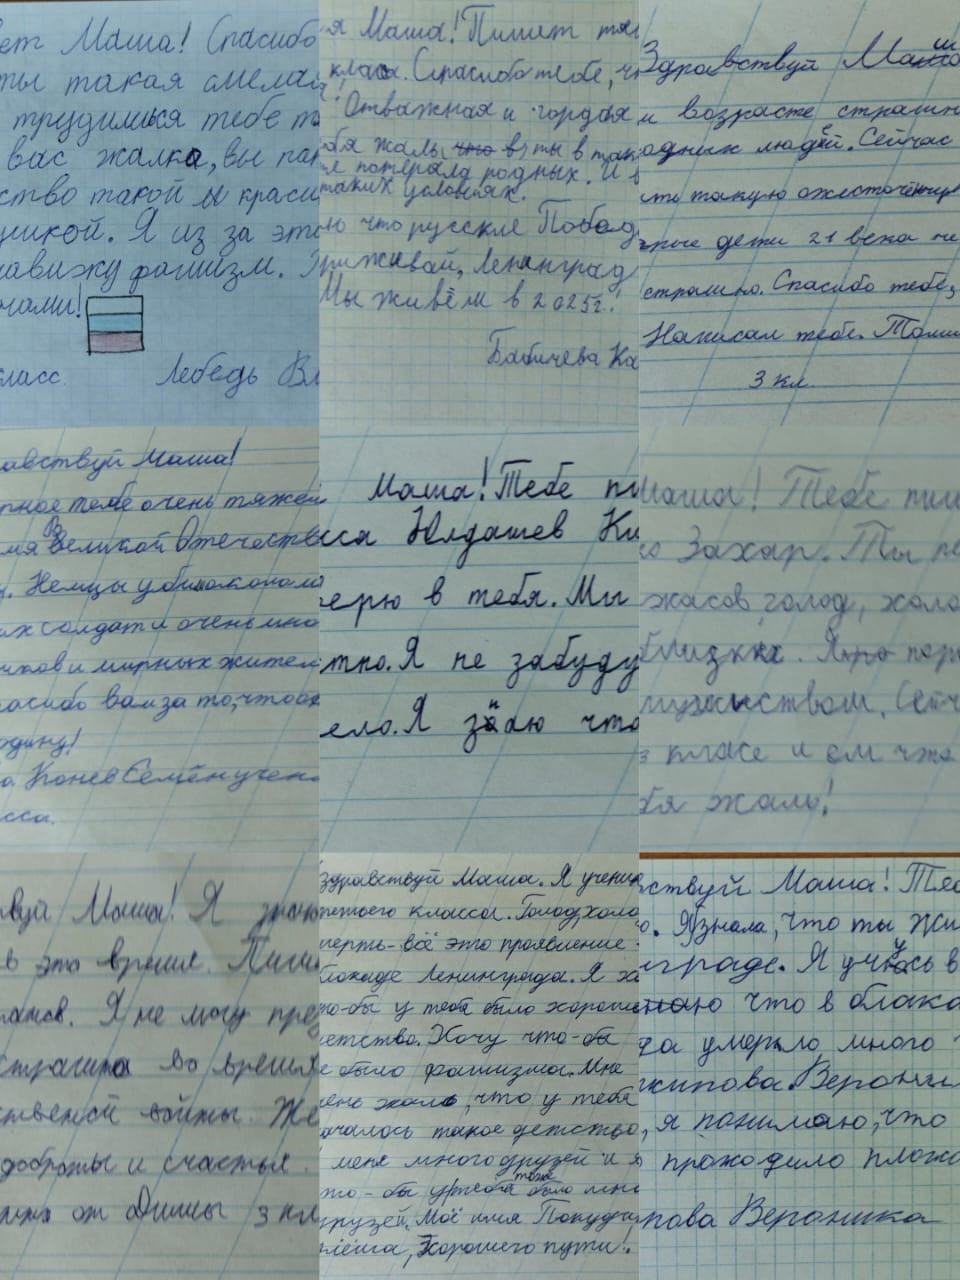 ет Маша! Спасибо
ты такая смелая
трудишься тебе
вас жалко, вы
ство такой и краси
цикой. Я из за это
навижу фашизм.
нами!
ласс. Лебедь Вл
я Маша! Пишет
класс. Спасибо тебе, что
Отважная и гордая
бя жаль что ты в так
потеряла родных. И в
таких условиях.
ю что русские Побед
Приживай, Ленинград
Мы живём в 2025г.!
Бабичева Ка
Здравствуй Маша
ш
и возрасте страшн
одных людей. Сейчас
ить такую ожесточённую
рые дети 21 века не
страшно. Спасибо тебе,
Написал тебе. Томи
3 кл.
авствуй Маша!
рное тебе очень тяжело
мя Великой Отечестве
Немцы убили
их солдат и очень мно
иков и мирных жител
пасибо вам за то, что
одину!
Конев Семён учен
сса.
Маша! Тебе пи
сса Юлдашев Ки
ерю в тебя. Мы
тно. Я не забуду
ело. Я знаю что
Маша! Тебе пиш
Захар. Ты пе
жасов, голод, холо
близких. пор
мужеством. Сейч
3 класе и ом что
бя жаль!
вуй Маша! Я знаю
в это время. Пиш
Я не могу пред
страшна во время
ственой войны. Же
доброты и счастья.
от Димы 3 кл
Здравствуй Маша. Я ученик
третьего класса. Голод, холо
мерть - всё это проявление
блокаде Ленинграда. Я хо
то-бы у тебя было хороше
етство. Хочу что-бы
е было фашизма. Мне
ень жаль, что у тебя
ачалось такое детство,
меня много друзей и я
тоже
то-бы у тебя было мно
друзей. Моё имя
Хорошего пути!
ствуй Маша! Теб
о. Я узнала, что ты жи
нграде. Я учусь в
знаю что в блока
да умерло много
кипова Верони
я понимаю, что
проходило плохо
пова Вероника